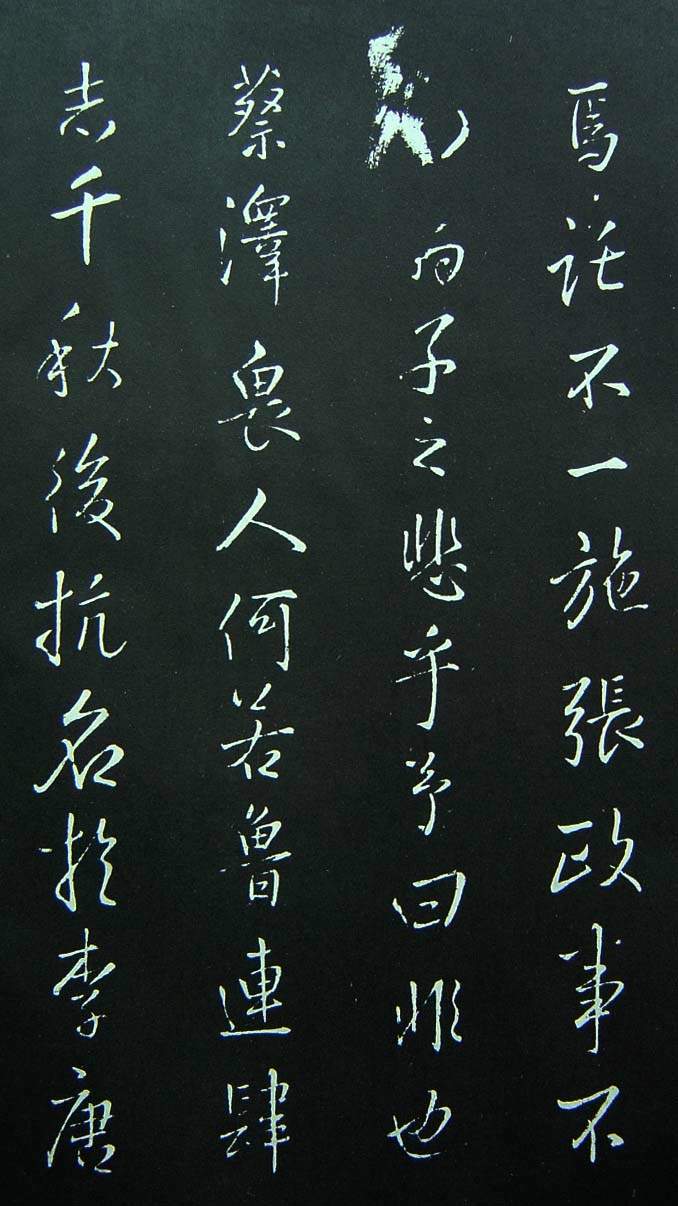 焉託不一施張政事不
向子之悲乎予曰非也
蔡澤畏人何若魯連肆
志千秋後抗名於李唐